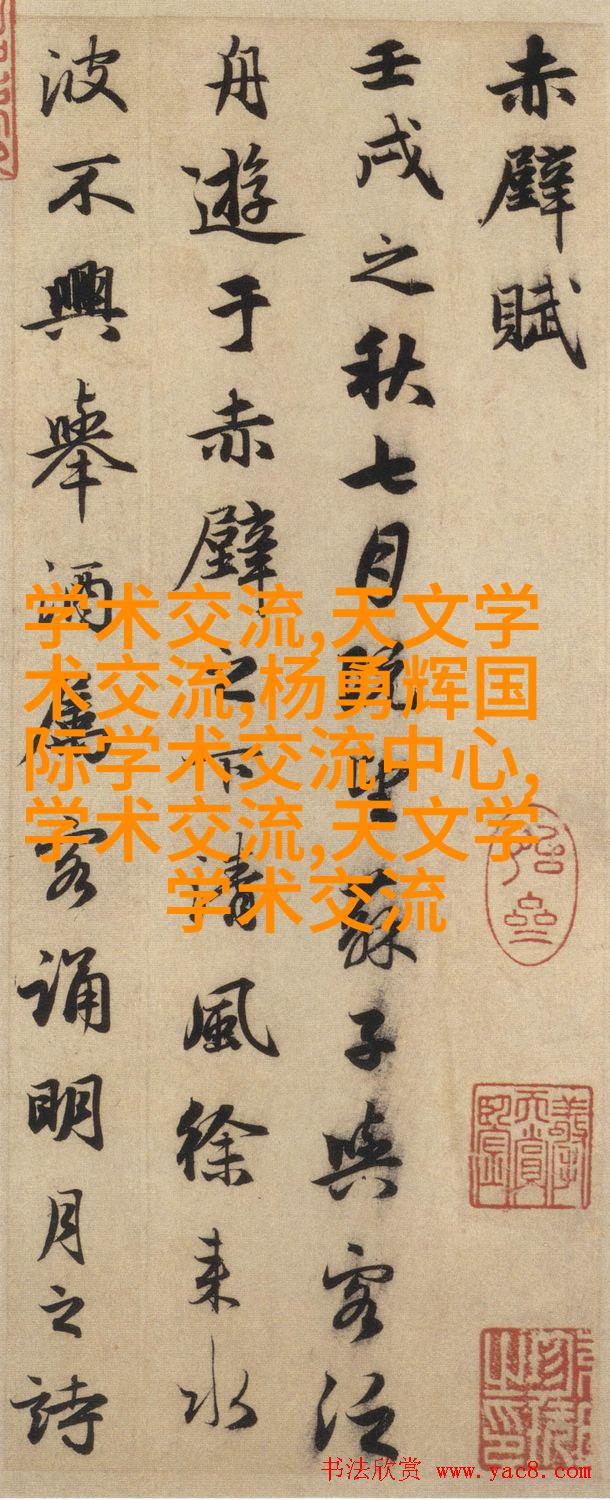 赤壁賦
壬戌之秋七月既望蘇子與客泛
舟遊于赤壁之下清風徐来水
波不興舉酒屬客誦明月之詩
学术交流,天文学
术交流,杨勇辉国
际学术交流中心,
学术交流,天文学
学术交流
书法欣赏 www.yac8.com